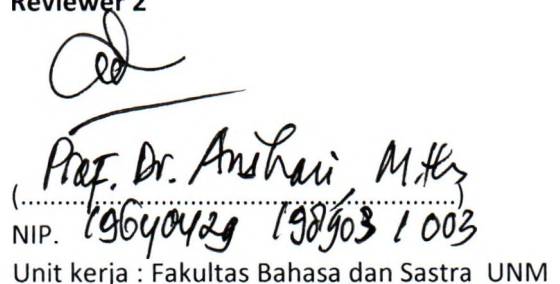 Reviewer 2
Prof. Dr. Anshari, M.Hum
(..........................................................)
NIP. 19640429 198903 1 003
Unit kerja : Fakultas Bahasa dan Sastra UNM